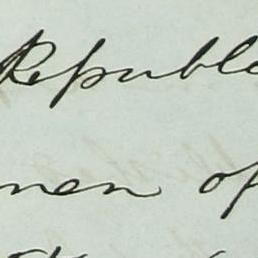 Republ
men of